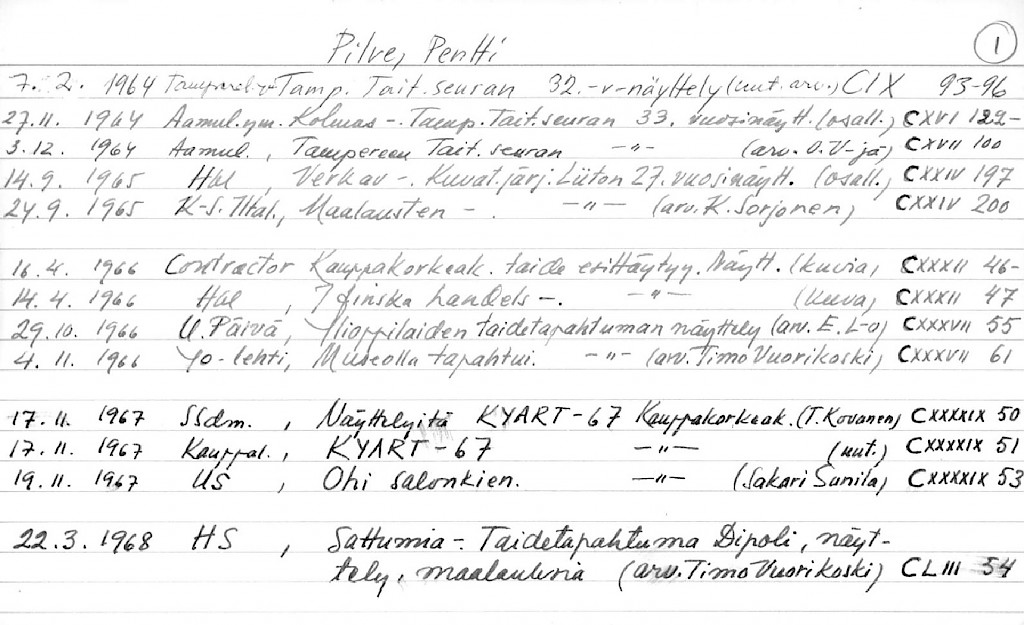 Pilve, Pentti
1
7. 2. 1964 Tamp. Tait. seuran 32. -v-näyttely (uut. arv.) CIX 93-96
27.11. 1964 Aamul. ym. Kolmas -. Tamp. Tait. seuran 33. vuosinäytt. (osall.) CXVI 122-
3.12. 1964 Aamul., Tampereen Tait. seuran -"- (arv. O. V-jä) CXVII 100
14.9. 1965 Hbl, Verkav -. Kuvat.järj. Liiton 27. vuosinäytt. (osall.) CXXIV 197
24.9. 1965 K-S. Iltal., Maalausten -. -"- (arv. K. Sorjonen) CXXIV 200
16.4. 1966 Contractor Kauppakorkeak. taide esittäytyy. Näytt. (kuvia) CXXXII 46-
14.4. 1966 Hbl, I finska handels -. -"- (kuva) CXXXII 47
29.10. 1966 U. Päivä, Ylioppilaiden taidetapahtuman näyttely (arv. E. L-o) CXXXVII 55
4.11. 1966 Yo-lehti, Museolla tapahtui. -"- (arv. Timo Vuorikoski) CXXXVII 61
17.11. 1967 SSdm., Näyttelyitä KYART-67 Kauppakorkeak. (T. Kovanen) CXXXXIX 50
17.11. 1967 Kauppal., KYART-67 -"- (uut.) CXXXXIX 51
19.11. 1967 US, Ohi salonkien. -"- (Sakari Sunila) CXXXXIX 53
22.3. 1968 HS, Sattumia -. Taidetapahtuma Dipoli, näyt-
tely, maalauksia (arv. Timo Vuorikoski) CLIII 54